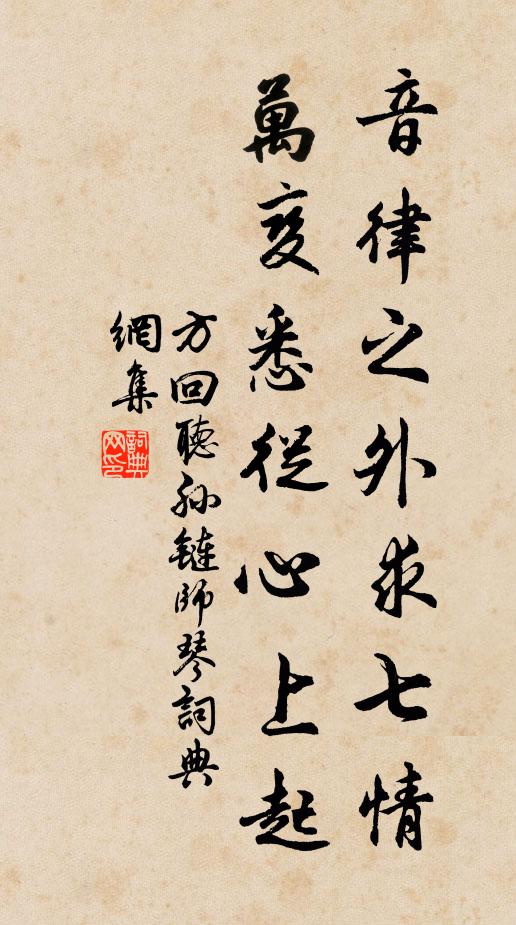 音律之外求七情
萬变悉從心上起
方回聽孙鏈師琴詞典
網集
詞典網印